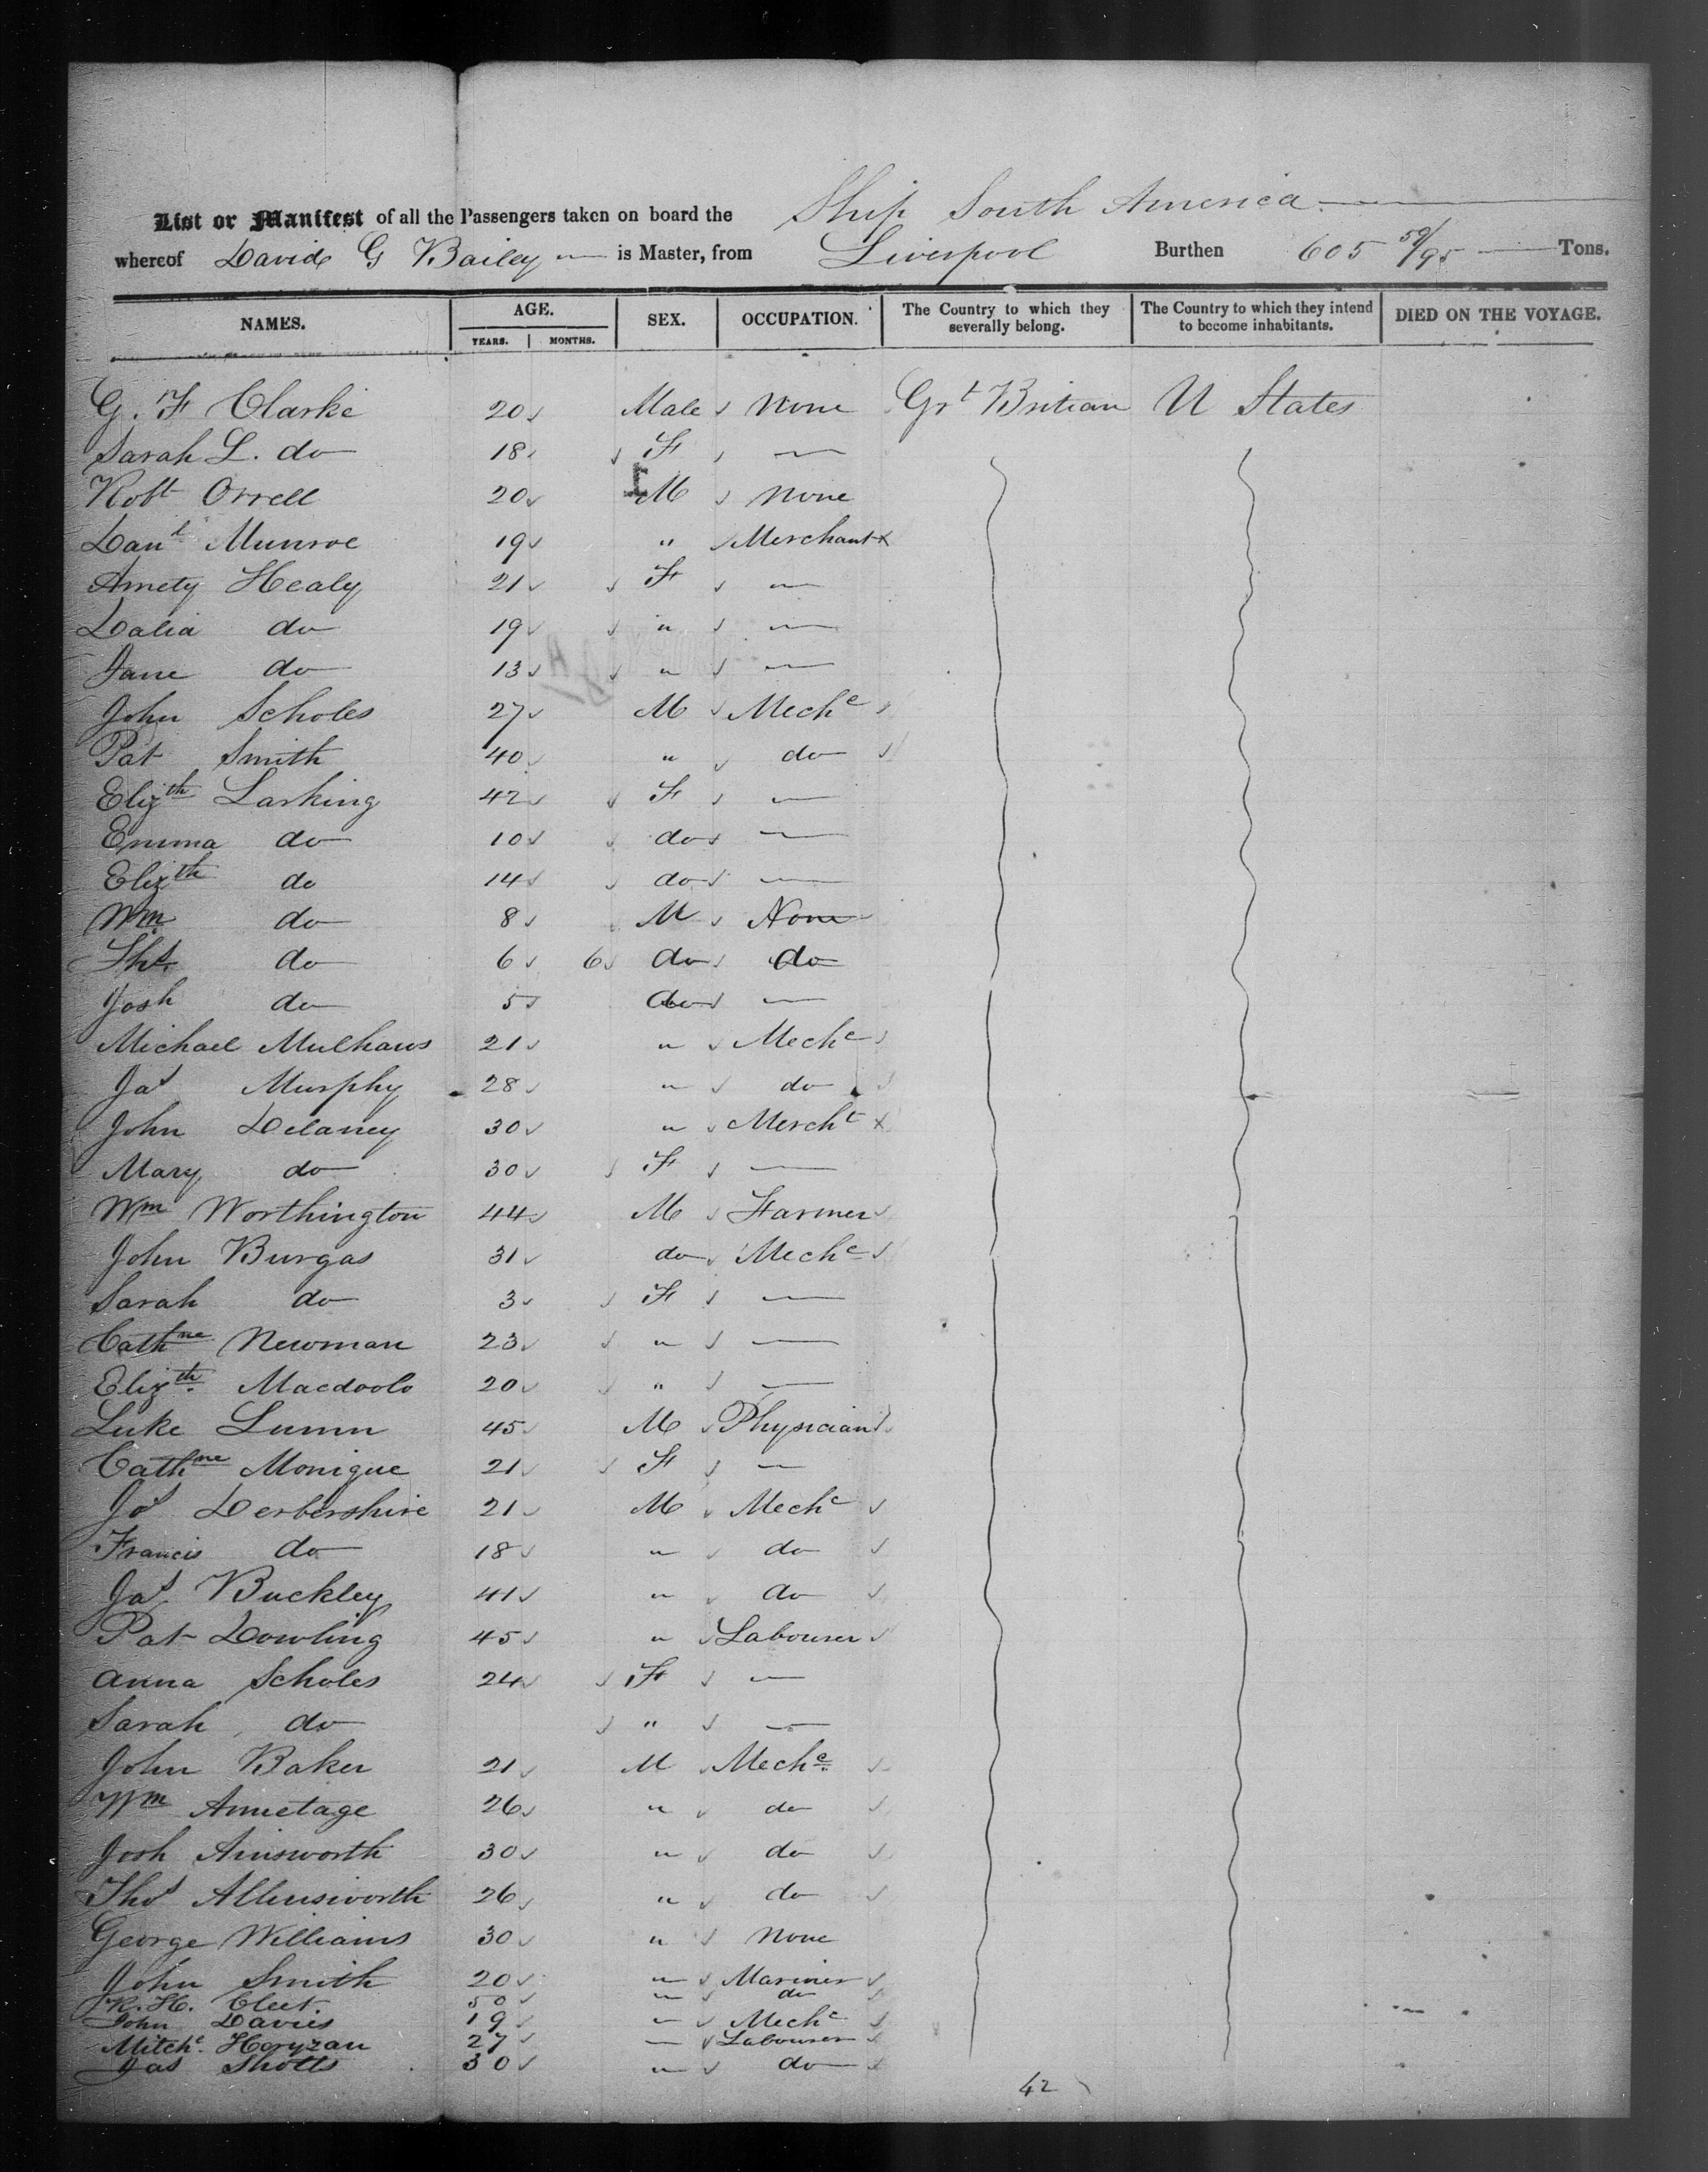 List or Manifest of all the Passengers taken on board the Ship South America
whereof David G Bailey is Master, from Liverpool Burthen 605 59/95 Tons.
NAMES. AGE. SEX. OCCUPATION. The Country to which they severally belong. The Country to which they intend to become inhabitants. DIED ON THE VOYAGE.
YEARS. MONTHS.
G. F Clarke 20 Male None Grt Britian U States
Sarah L. do 18 F —
Robt Orrell 20 M None
Danl Munroe 19 " Merchant
Amety Healy 21 F —
Dalia do 19 " —
Jane do 13 " —
John Scholes 27 M Mechc
Pat Smith 40 " do
Elizth Larking 42 F —
Emma do 10 do —
Elizth do 14 do —
Wm do 8 M None
Ths do 6 6 do do
Josh do 5 do —
Michael Mulhaws 21 " Mechc
Jas Murphy 28 " do
John Delaney 30 " Mercht
Mary do 30 F —
Wm Worthington 44 M Farmer
John Burgas 31 do Mechc
Sarah do 3 F —
Cathne Newman 23 " —
Elizth Macdoolo 20 " —
Luke Lumn 45 M Physician
Cathne Monigue 21 F —
Jos Derbershire 21 M Mechc
Francis do 18 " do
Jas Buckley 41 " do
Pat Dowling 45 " Labourer
Anna Scholes 24 F —
Sarah do " —
John Baker 21 M Mechc
Wm Armetage 26 " do
Josh Ainsworth 30 " do
Thos Allensworth 26 " do
George Williams 30 " None
John Smith 20 " Mariner
R. H. Cleet. 50 " do
John Davies 19 " Mechc
Mitchc Horyzan 27 — Labourer
Jas Shotts 30 " do
42